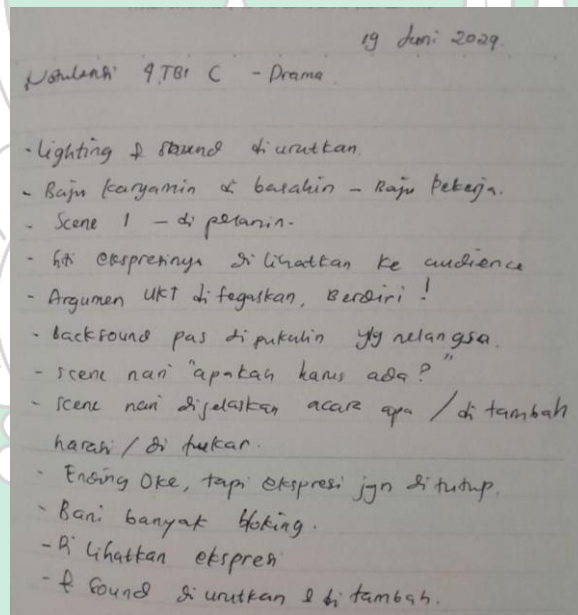 19 Juni 2024.
Notulensi 4 TBI C - Drama
- Lighting & sound di urutkan.
- Baju karyamin di basahin - Baju Pekerja.
- Scene 1 - di pelanin.
- Siti ekspresinya di lihatkan ke audience
- Argumen UKT di tegaskan, Berdiri !
- backsound pas di pukulin yg nelangsa.
- scene nari "apakah harus ada?"
- scene nari dijelaskan acara apa / di tambah
/ di tukar.
- Ending Oke, tapi ekspresi jgn di tutup.
- Bani banyak bloking.
- Di lihatkan ekspresi
- & Sound di urutkan & di tambah.